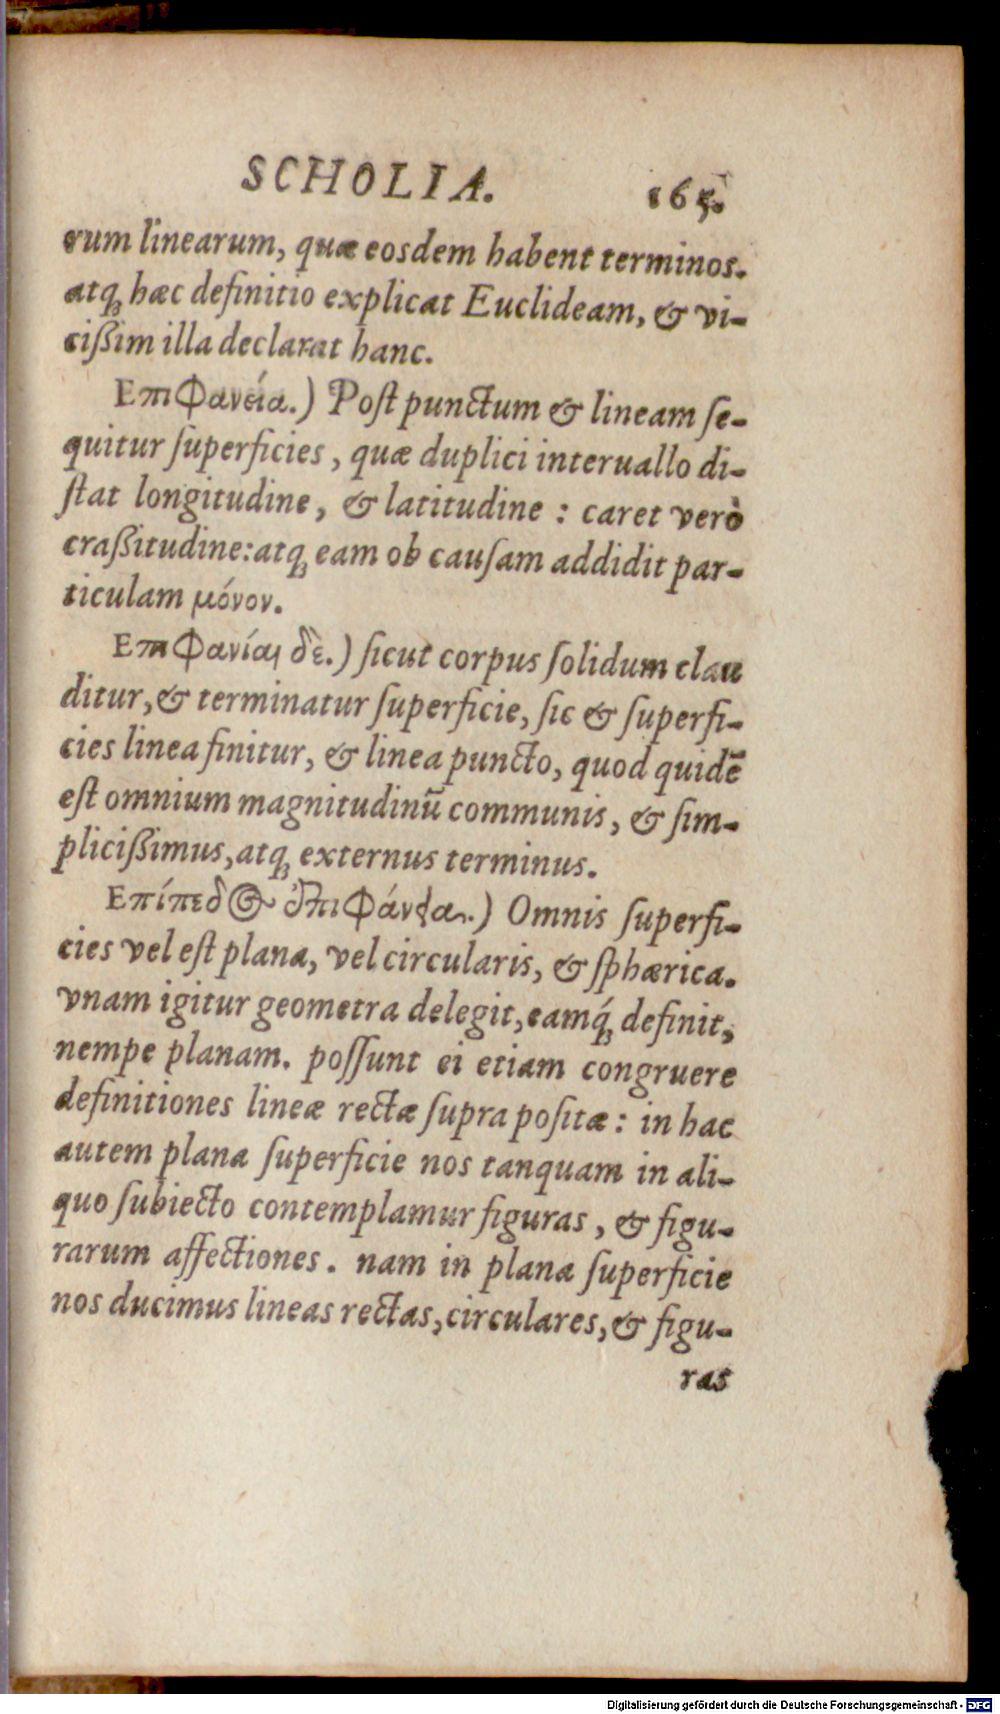 SCHOLIA. 165.
rum linearum, quæ eosdem habent terminos.
atq́; hæc definitio explicat Euclideam, & vi-
cißim illa declarat hanc.
Επιφανεία.) Poſt punctum & lineam ſe-
quitur ſuperficies, quæ duplici interuallo di-
ſtat longitudine, & latitudine : caret verò
craßitudine: atq; eam ob cauſam addidit par-
ticulam μόνον.
Επιφανίας δὲ.) ſicut corpus ſolidum clau
ditur, & terminatur ſuperficie, ſic & ſuperfi-
cies linea finitur, & linea puncto, quod quidē
eſt omnium magnitudinū communis, & ſim-
plicißimus, atq; externus terminus.
Επίπεδος ἐπιφάνεια.) Omnis ſuperfi-
cies vel eſt plana, vel circularis, & ſphærica.
vnam igitur geometra delegit, eamq́; definit,
nempe planam. poſſunt ei etiam congruere
definitiones lineæ rectæ ſupra poſitæ: in hac
autem plana ſuperficie nos tanquam in ali-
quo ſubiecto contemplamur figuras, & figu-
rarum affectiones. nam in plana ſuperficie
nos ducimus lineas rectas, circulares, & figu-
ras
Digitalisierung gefördert durch die Deutsche Forschungsgemeinschaft - DFG